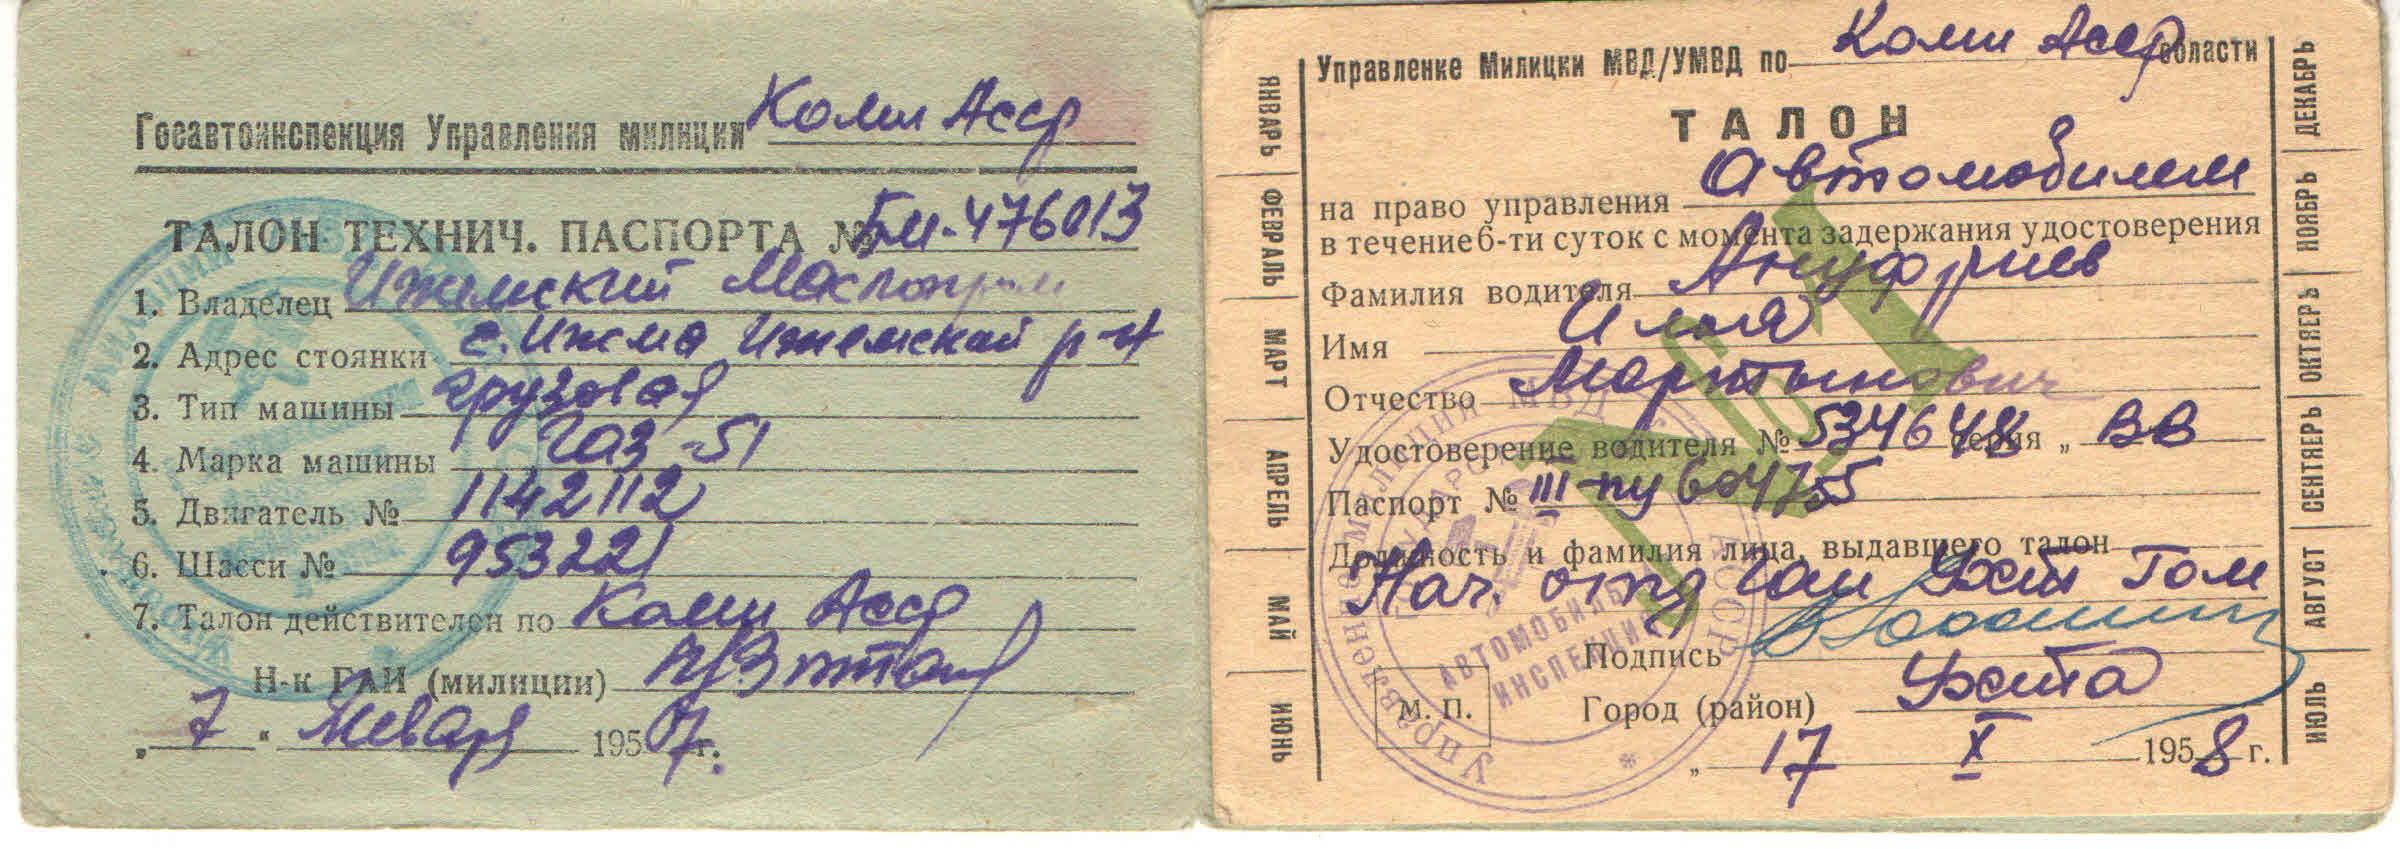 Госавтоинспекция Управления милиции Коми Асср
ТАЛОН ТЕХНИЧ. ПАСПОРТА № БМ-476013
1. Владелец Ижемский Маслопром
2. Адрес стоянки с. Ижма Ижемский р-н
3. Тип машины грузовая
4. Марка машины ГАЗ-51
5. Двигатель № 1142112
6. Шасси № 953221
7. Талон действителен по Коми Асср
Н-к ГАИ (милиции)
„ 7 “ Января 1957 г.
Управление Милиции МВД/УМВД по Коми Асср области
ТАЛОН
на право управления Автомобилем
в течение 6-ти суток с момента задержания удостоверения
Фамилия водителя Ануфриев
Имя Илья
Отчество Мартынович
Удостоверение водителя № 534648 серия „ ВВ
Паспорт № III-ПУ 604755
Должность и фамилия лица, выдавшего талон
Нач. отд ГАИ Ухт ГОМ
Подпись
М. П.
Город (район) Ухта
„ 17 X 1958 г.
№ 1
ЯНВАРЬ
ФЕВРАЛЬ
МАРТ
АПРЕЛЬ
МАЙ
ИЮНЬ
ДЕКАБРЬ
НОЯБРЬ
ОКТЯБРЬ
СЕНТЯБРЬ
АВГУСТ
ИЮЛЬ
АВТОМОБИЛЬН
ИНСПЕКЦИЯ